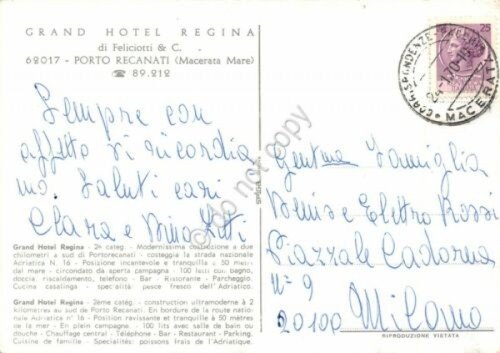 GRAND HOTEL REGINA
di Feliciotti & C.
62017 - PORTO RECANATI (Macerata Mare)
☎ 89.212
Sempre con
affetto vi ricordia
mo. Saluti cari
Clara e Dino
Grand Hotel Regina - 2ª categ. - Modernissima costruzione a due
chilometri a sud di Portorecanati - costeggia la strada nazionale
Adriatica N. 16 - Posizione incantevole e tranquilla a 50 metri
dal mare - circondato da aperta campagna - 100 letti con bagno,
doccia, riscaldamento, telefono - Bar - Ristorante - Parcheggio.
Cucina casalinga - specialità pesce fresco dell'Adriatico.
Grand Hotel Regina - 2ème categ. - construction ultramoderne à 2
kilomètres au sud de Porto Recanati. En bordure de la route nationale
Adriatica N° 16 - Position ravissante et tranquille à 50 mètres
de la mer - En plein campagne. - 100 lits avec salle de bain ou
douche - Chauffage central - Téléphone - Bar - Restaurant - Parking.
Cuisine de Famille - Specialités: poissons frais de l'Adriatique.
25
CORRISPONDENZE MACERATA
Gentma Famiglia
Denise e Elettro Rossi
Piazzale Cadorna
n° 9
20100 Milano
RIPRODUZIONE VIETATA
do not copy